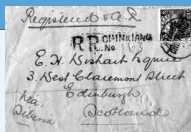 Registered A.R.
R CHINKIANG
No 163
E. H. Wishart Esquire
3. West Claremont Street
Edinburgh
Scotland
Via
Siberia